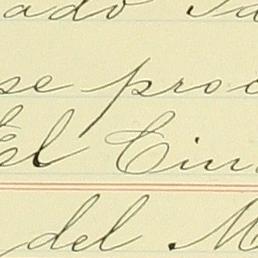 ado
se proc
El Ciu
del M